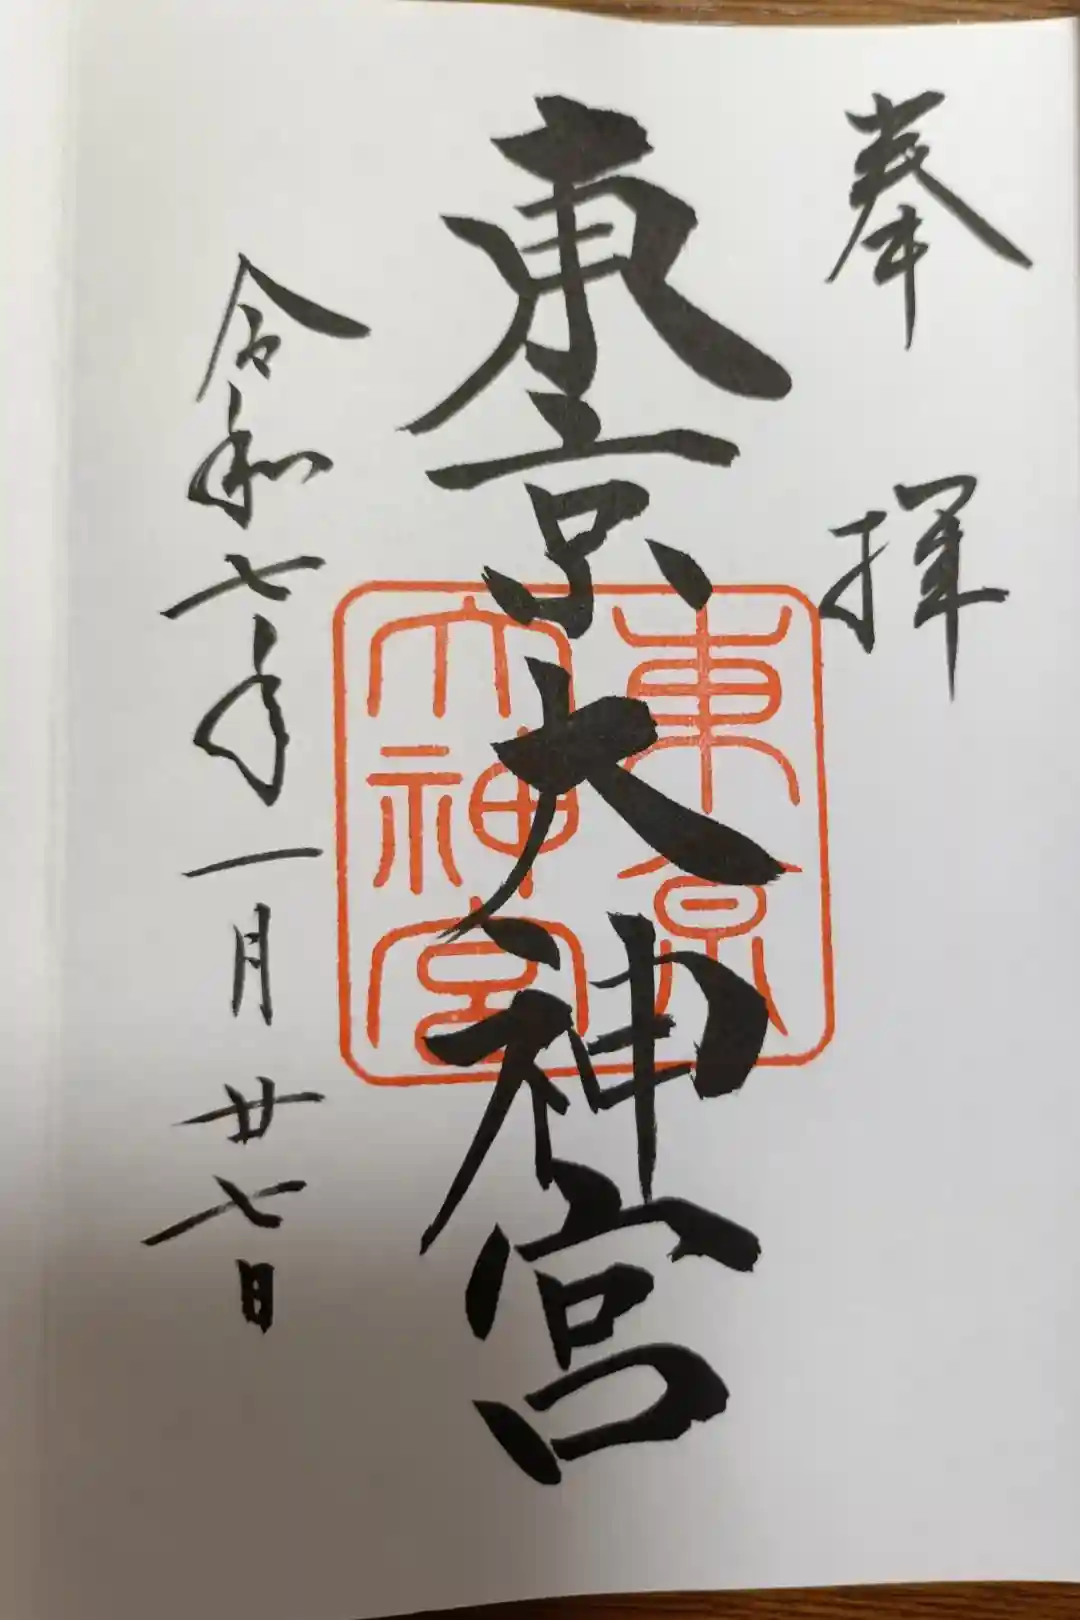 奉拝
東京大神宮
東京
大神宮
令和七年一月廿七日